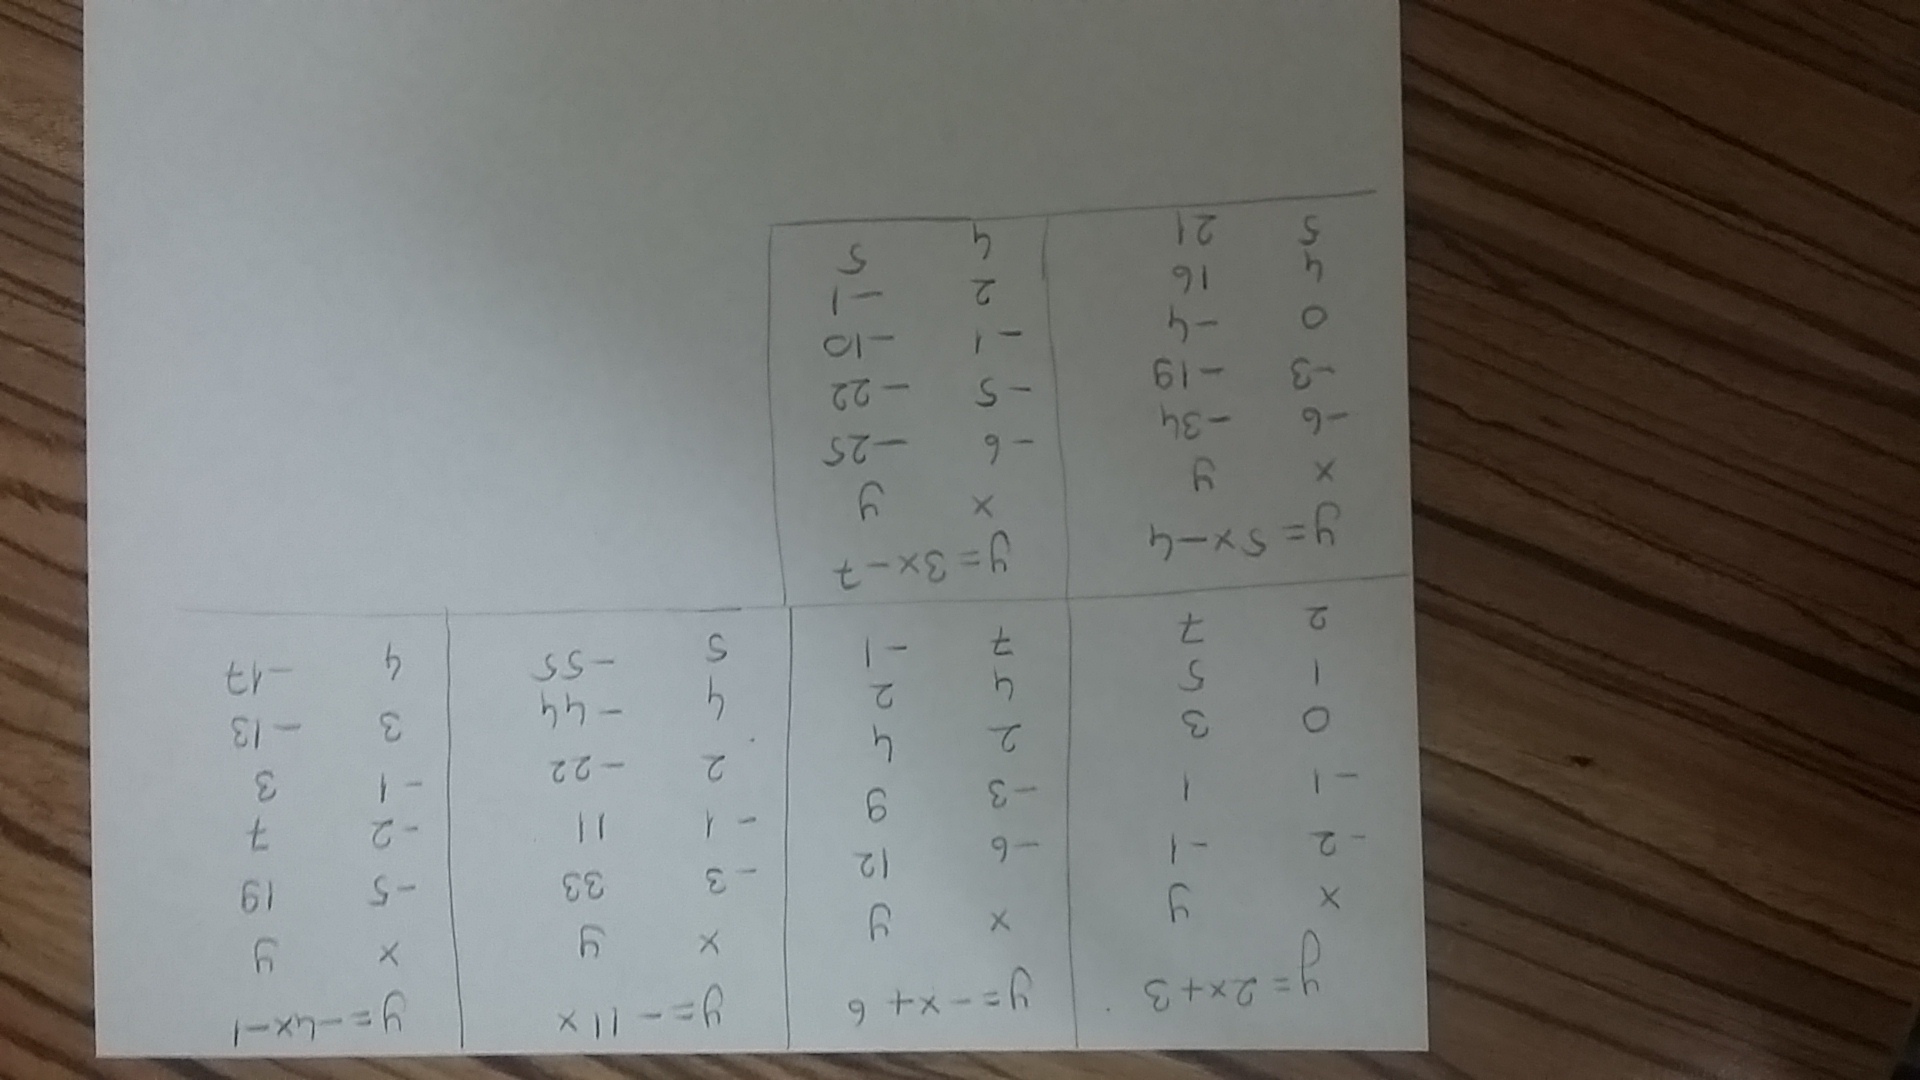 y=2x+3
x y
-2 -1
-1 1
0 3
1 5
2 7
y=-x+6
x y
-6 12
-3 9
2 4
4 2
7 -1
y=-11x
x y
-3 33
-1 11
2 -22
4 -44
5 -55
y=-4x-1
x y
-5 19
-2 7
-1 3
3 -13
4 -17
y=5x-4
x y
-6 -34
-3 -19
0 -4
4 16
5 21
y=3x-7
x y
-6 -25
-5 -22
-1 -10
2 -1
4 5